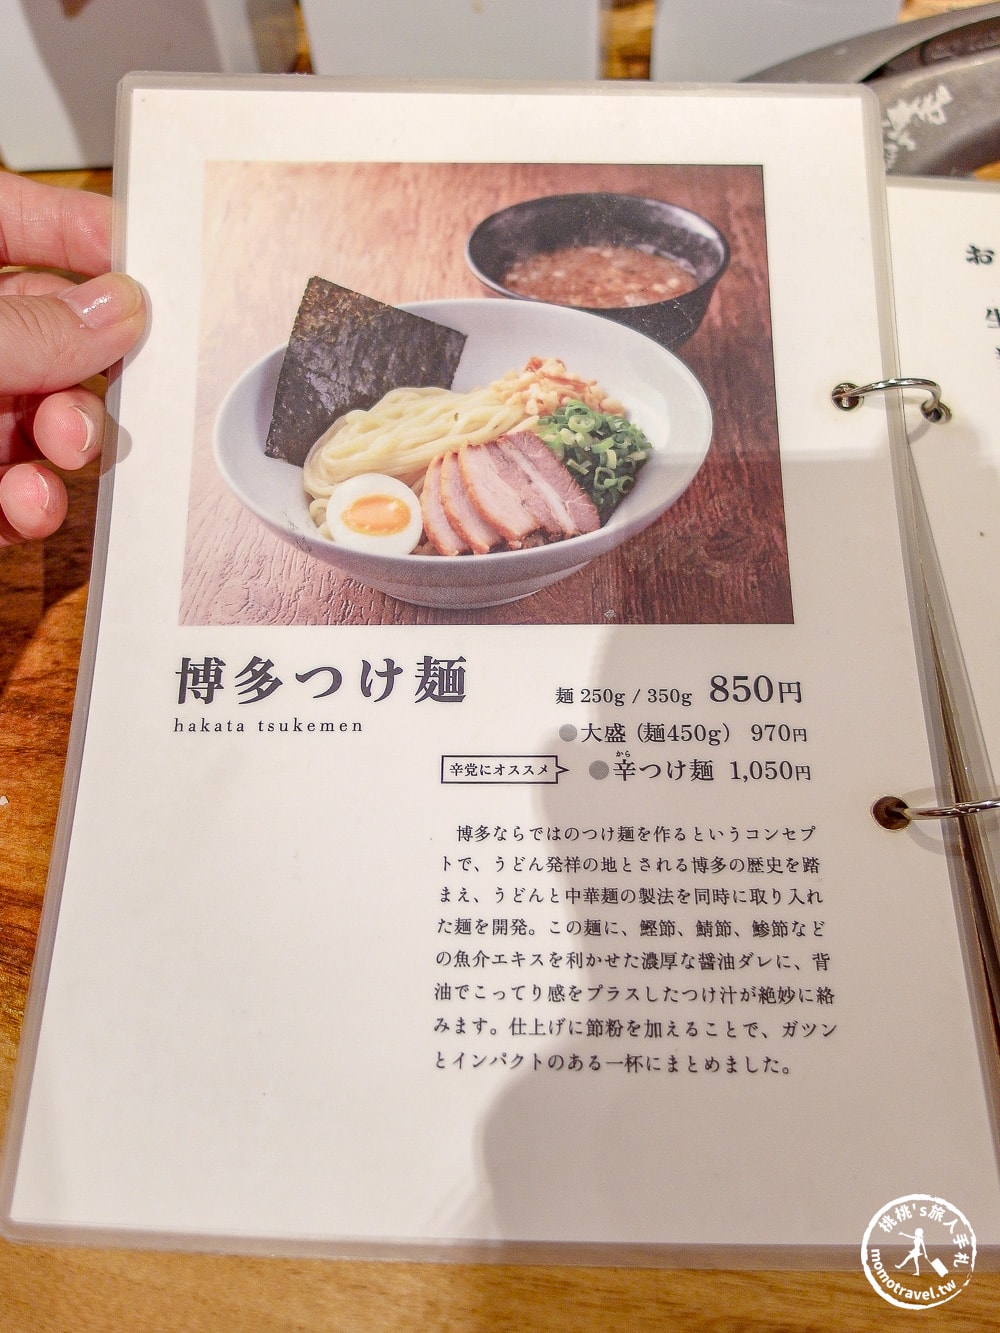 博多つけ麺
hakata tsukemen
麺 250g / 350g 850円
●大盛（麺450g） 970円
辛党にオススメ ●辛つけ麺 1,050円
から
博多ならではのつけ麺を作るというコンセプ
トで、うどん発祥の地とされる博多の歴史を踏
まえ、うどんと中華麺の製法を同時に取り入れ
た麺を開発。この麺に、鰹節、鯖節、鯵節など
の魚介エキスを利かせた濃厚な醤油ダレに、背
油でこってり感をプラスしたつけ汁が絶妙に絡
みます。仕上げに節粉を加えることで、ガツン
とインパクトのある一杯にまとめました。
お
桃桃's旅人手札
momotravel.tw